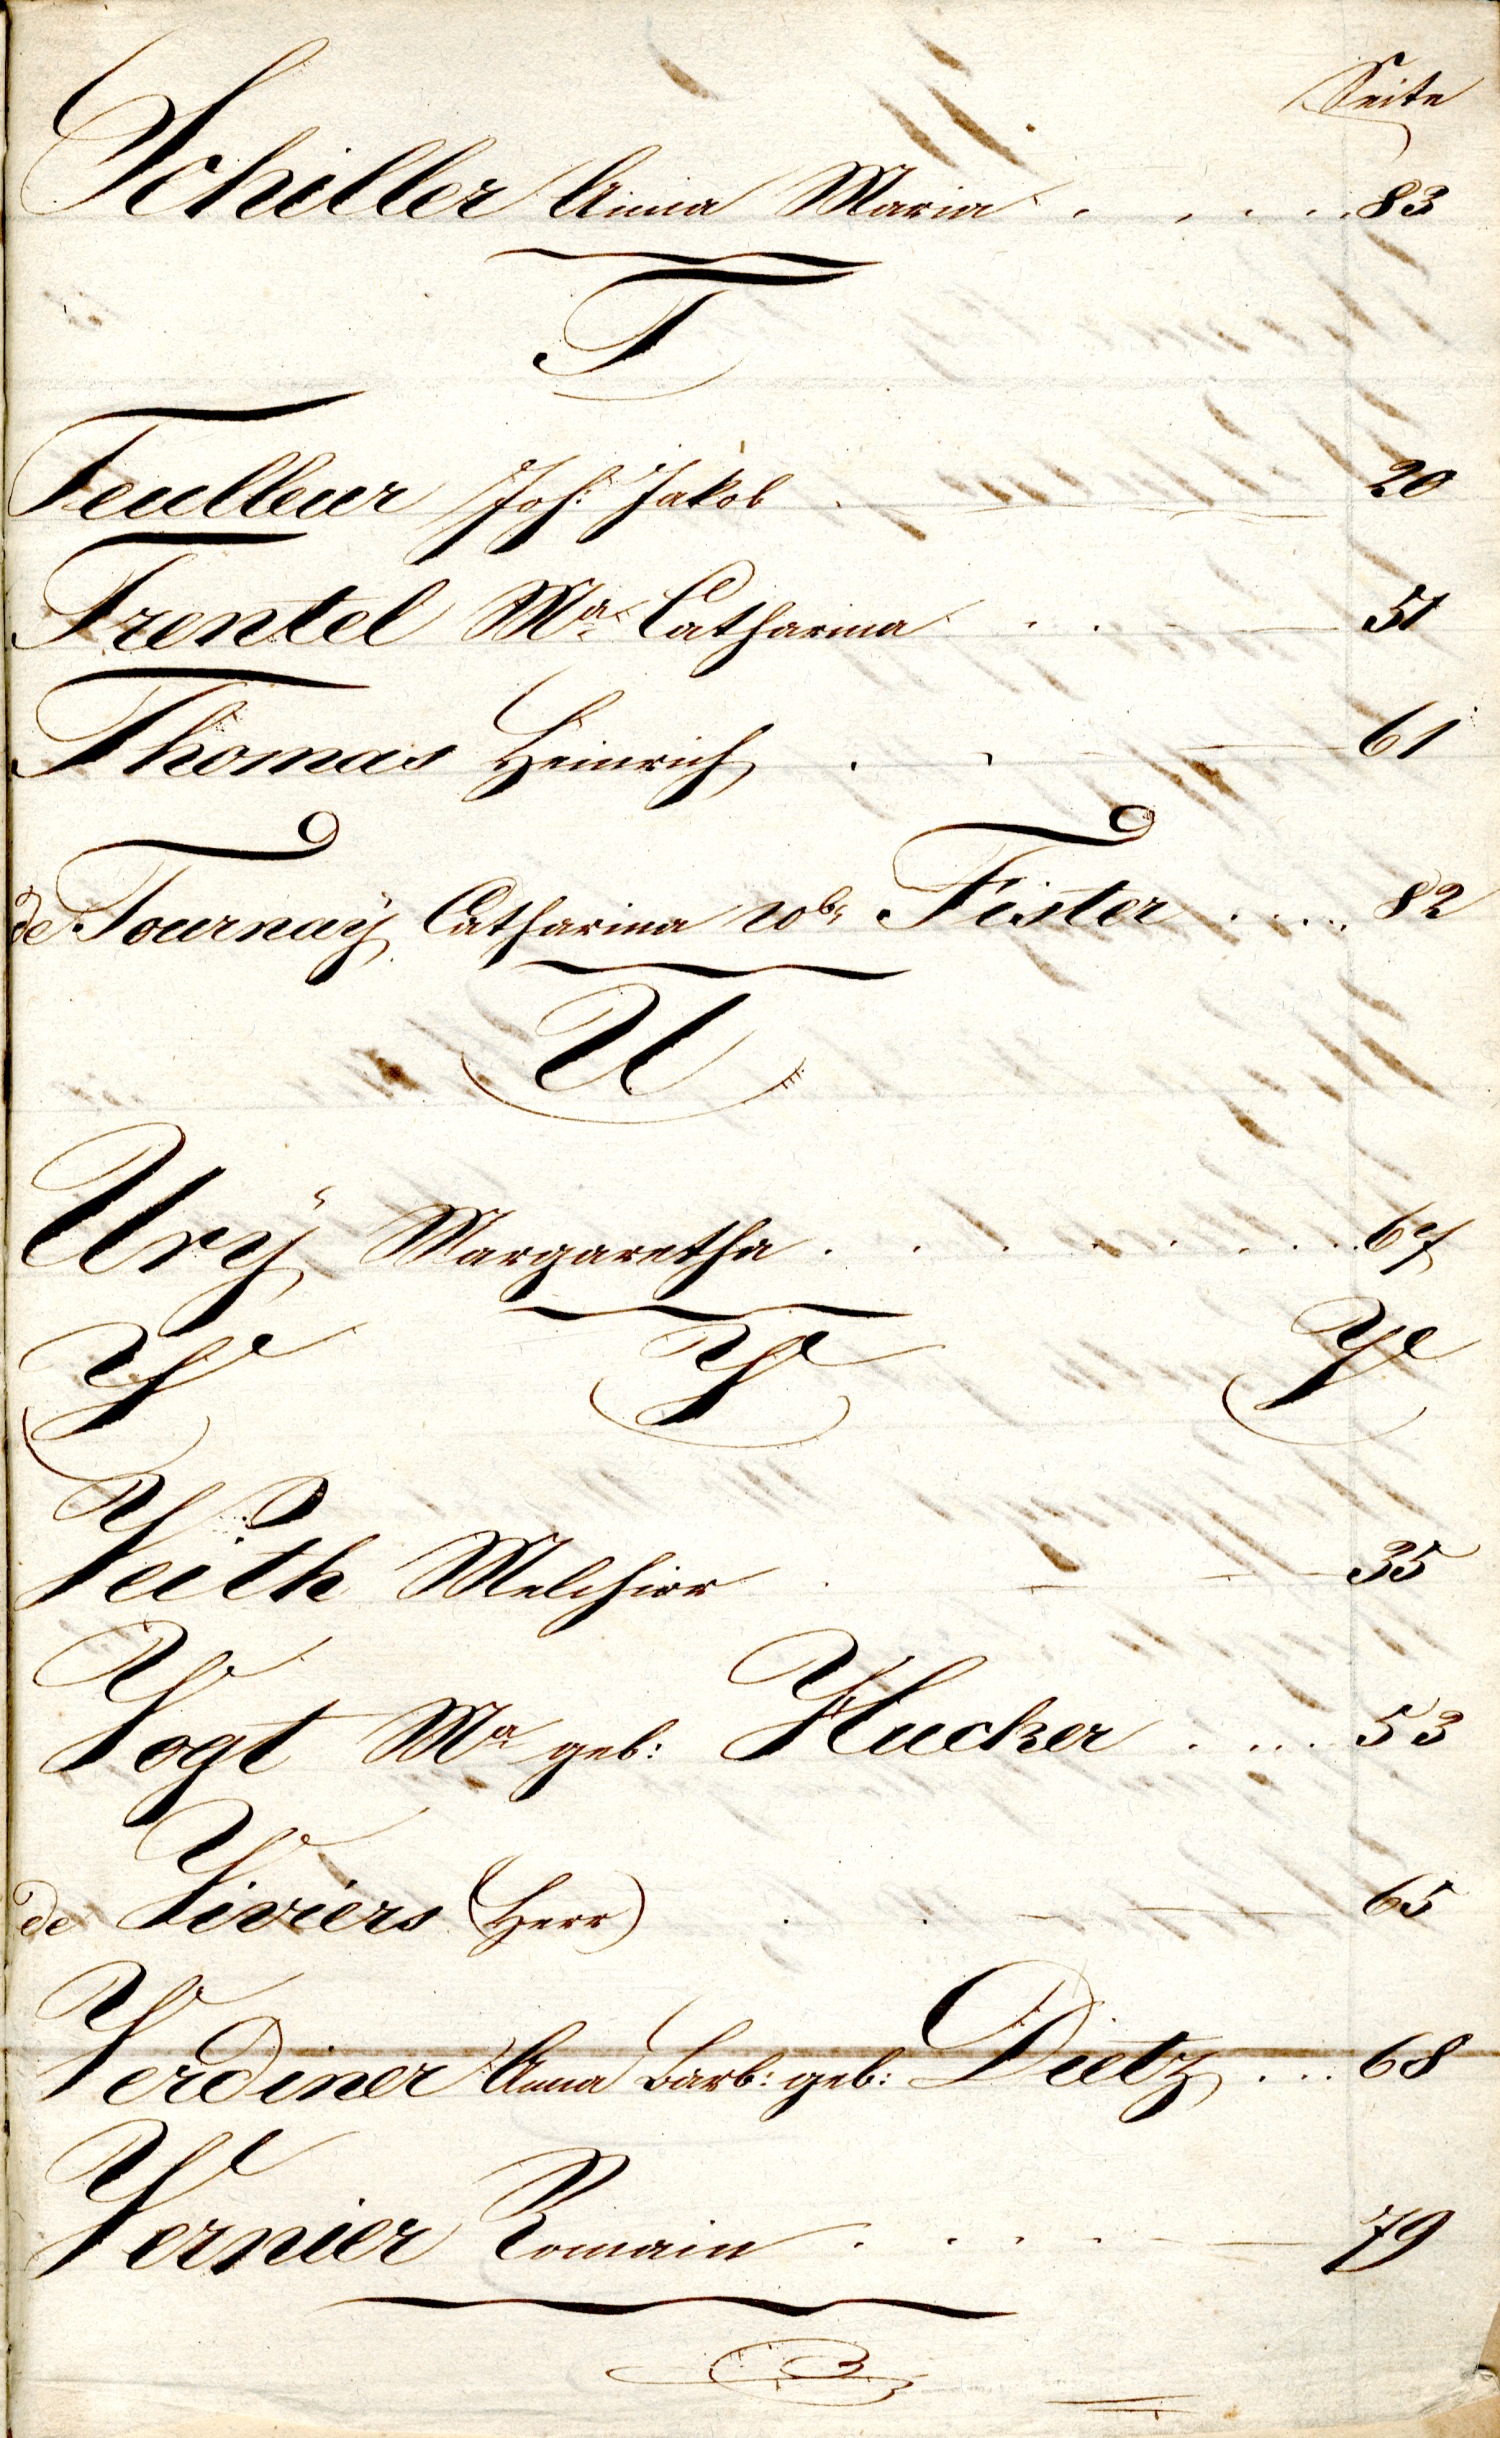 Seite
Schiller Anna Maria . . . . . 83
T
Teulleur Joh: Jakob . 20
Trentel Ma. Catharina . . 51
Thomas Heinrich . . 61
de Tournaÿ Catharina wb. Fister . . . . 82
U
Urÿ Margaretha . . . . . . . . 67
V V V
Veith Melchior . 35
Vogt Ma geb: Hucker . . . . 53
de Viviers (Herr) . . 65
Verdiner Anna Barb: geb: Dietz . . . 68
Vernier Romain . . . . . 79